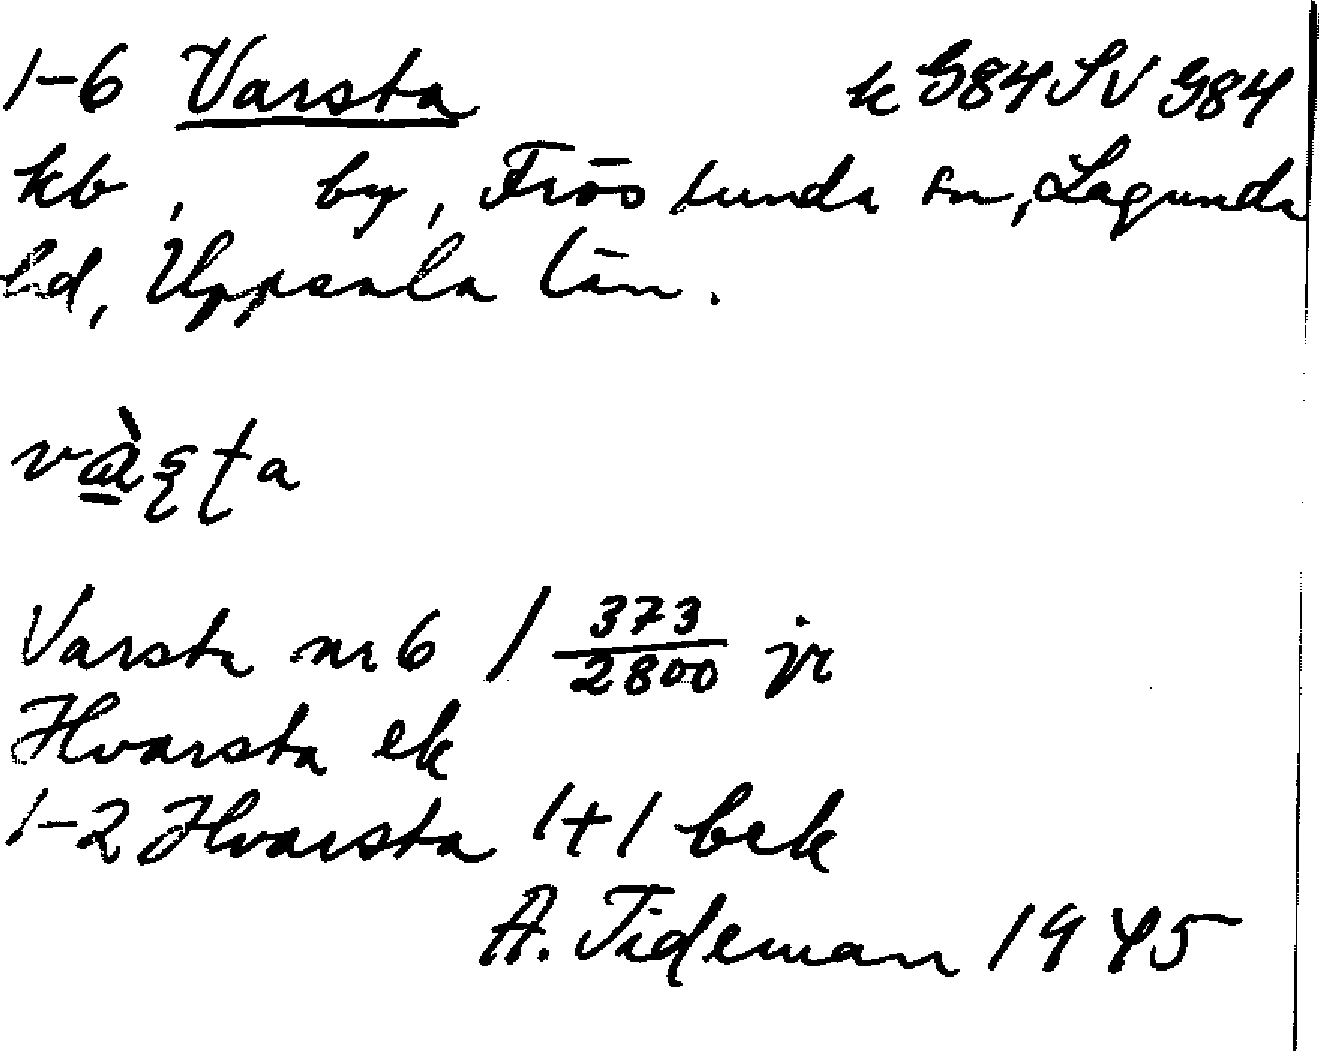 1-6 Varsta k G84 SV G84
kb, by, FrösTunda sn, Lagunda
hd, Uppsala län.
và̠ʂʈa
Varsta nr 6 1 373/2800 jr
Hvarsta ek
1-2 Hvarsta 1+1 bek
A. Tideman 1945